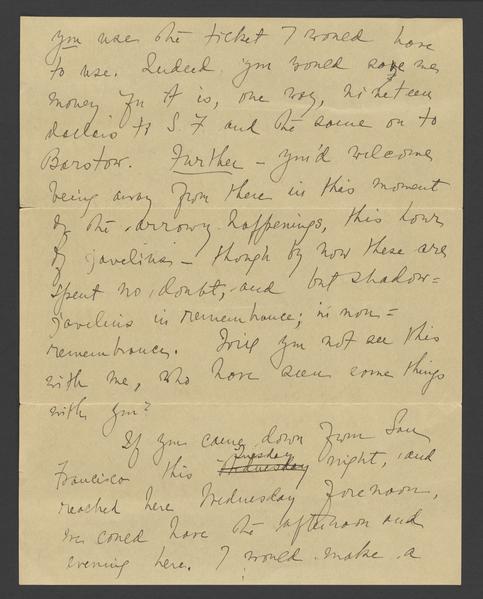 you use the ticket I would have
to use. Indeed you would save me
money for it is, one way, nineteen
dollars to S.F and the same on to
Barstow. Further – you'd welcome
being away from there in this moment
of the arrowy happenings, this hour
of javelins – though by now these are
spent no doubt, and but shadow=
javelins in remembrance; in non=
remembrance. Will you not see this
with me, who have seen some things
with you?
If you came down from San
Tuesday
Francisco this Wednesday night, and
reached here Wednesday forenoon,
we could have the afternoon and
evening here. I would make a